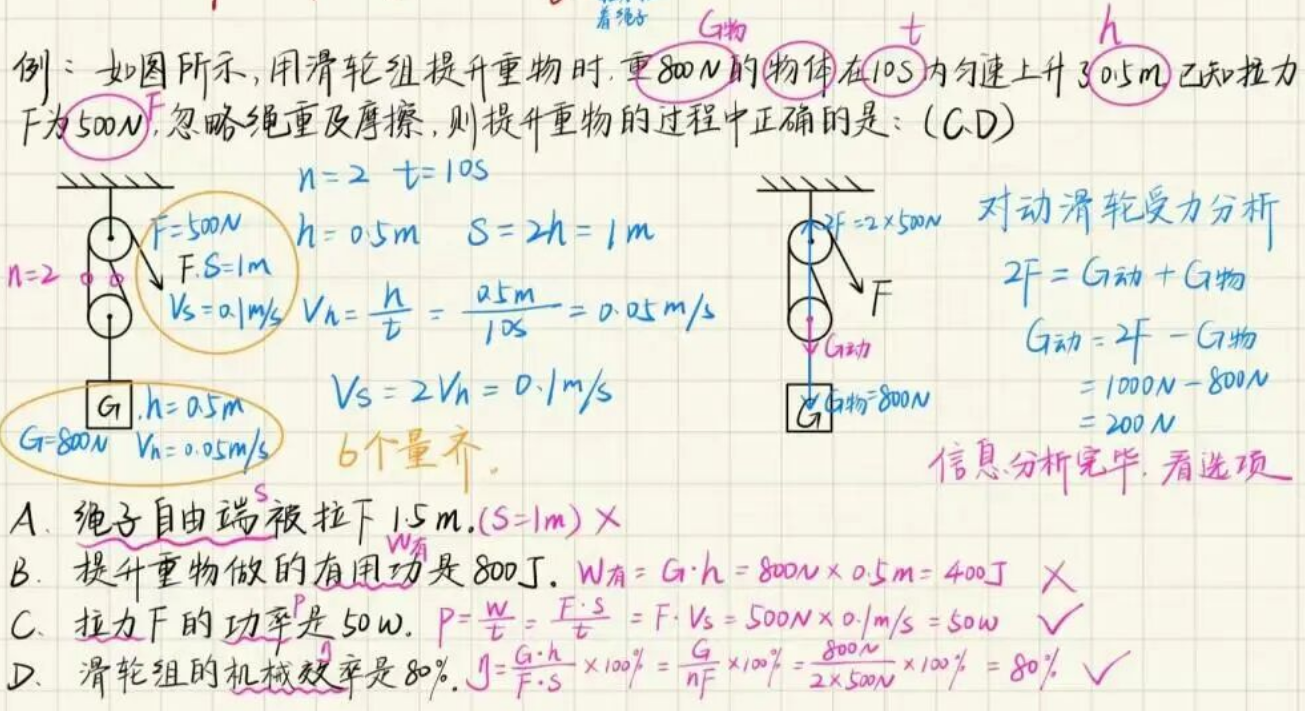 着绳子
G物 t h
例：如图所示,用滑轮组提升重物时.重800N的物体在10S内匀速上升了0.5m,已知拉力
F
F为500N,忽略绳重及摩擦,则提升重物的过程中正确的是:(C.D)
n=2 t=10S
h=0.5m S=2h=1m
Vh=h/t=0.5m/10S=0.05m/s
Vs=2Vh=0.1m/s
6个量齐.
F=500N
F.S=1m
Vs=0.1m/s
n=2
G
.h=0.5m
G=800N Vh=0.05m/s
2F=2×500N
F
G动
G物=800N
G
对动滑轮受力分析
2F=G动+G物
G动=2F-G物
=1000N-800N
=200N
信息分析完毕.看选项
S
A. 绳子自由端被拉下1.5m.(S=1m)×
W有
B. 提升重物做的有用功是800J. W有=G·h=800N×0.5m=400J ×
P
C. 拉力F的功率是50w. P=W/t=F·S/t=F·Vs=500N×0.1m/s=50w ✓
η
D. 滑轮组的机械效率是80%. η=G·h/F·S×100%=G/nF×100%=800N/2×500N×100%=80% ✓